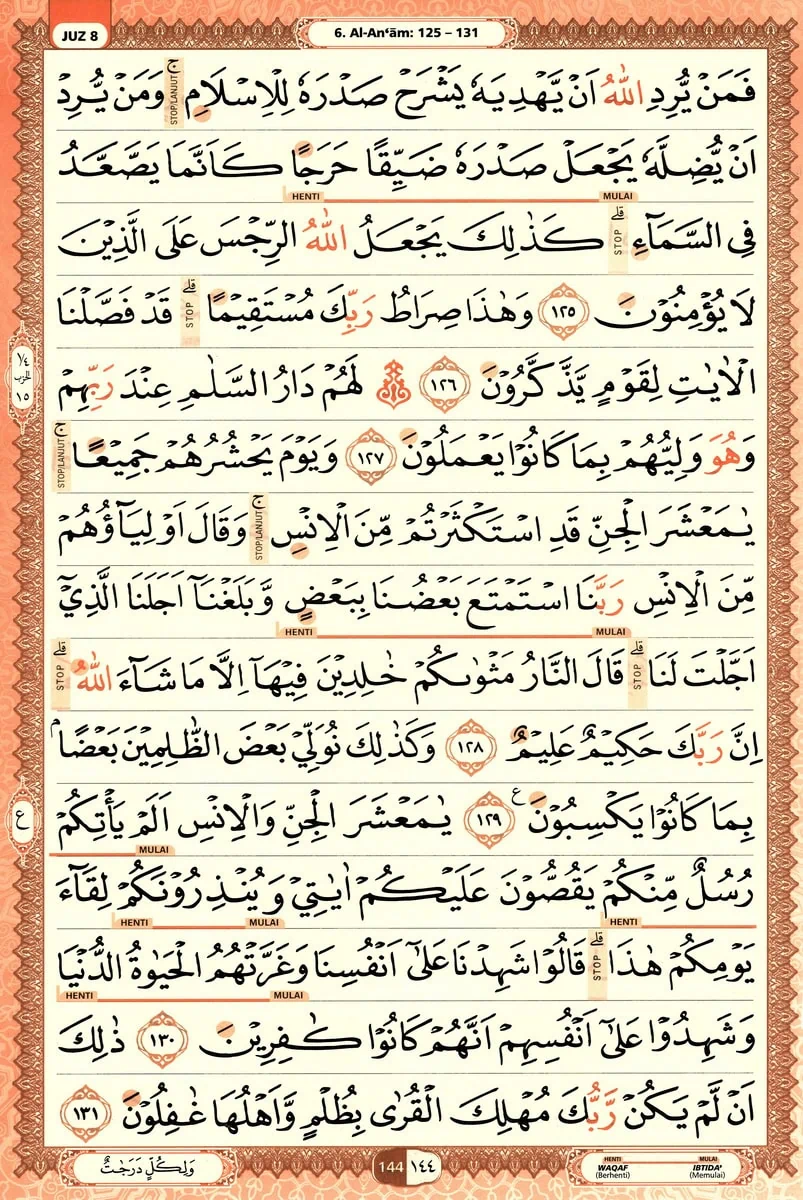 JUZ 8
6. Al-An‘ām: 125 – 131
فَمَنْ يُّرِدِ اللّٰهُ اَنْ يَّهْدِيَهٗ يَشْرَحْ صَدْرَهٗ لِلْاِسْلَامِۚ STOP/LANJUT وَمَنْ يُّرِدْ
اَنْ يُّضِلَّهٗ يَجْعَلْ صَدْرَهٗ ضَيِّقًا حَرَجًا كَاَنَّمَا يَصَّعَّدُ
HENTI MULAI
فِى السَّمَاۤءِۗ STOP كَذٰلِكَ يَجْعَلُ اللّٰهُ الرِّجْسَ عَلَى الَّذِيْنَ
لَا يُؤْمِنُوْنَ ١٢٥ وَهٰذَا صِرَاطُ رَبِّكَ مُسْتَقِيْمًاۗ STOP قَدْ فَصَّلْنَا
الْاٰيٰتِ لِقَوْمٍ يَّذَّكَّرُوْنَ ١٢٦ لَهُمْ دَارُ السَّلٰمِ عِنْدَ رَبِّهِمْ
وَهُوَ وَلِيُّهُمْ بِمَا كَانُوْا يَعْمَلُوْنَ ١٢٧ وَيَوْمَ يَحْشُرُهُمْ جَمِيْعًاۚ STOP/LANJUT
يٰمَعْشَرَ الْجِنِّ قَدِ اسْتَكْثَرْتُمْ مِّنَ الْاِنْسِۚ STOP/LANJUT وَقَالَ اَوْلِيَاۤؤُهُمْ
مِّنَ الْاِنْسِ رَبَّنَا اسْتَمْتَعَ بَعْضُنَا بِبَعْضٍ وَّبَلَغْنَآ اَجَلَنَا الَّذِيْٓ
HENTI MULAI
اَجَّلْتَ لَنَاۗ STOP قَالَ النَّارُ مَثْوٰىكُمْ خٰلِدِيْنَ فِيْهَآ اِلَّا مَا شَاۤءَ اللّٰهُۗ STOP
اِنَّ رَبَّكَ حَكِيْمٌ عَلِيْمٌ ١٢٨ وَكَذٰلِكَ نُوَلِّيْ بَعْضَ الظّٰلِمِيْنَ بَعْضًاۢ
بِمَا كَانُوْا يَكْسِبُوْنَ ࣖ ١٢٩ يٰمَعْشَرَ الْجِنِّ وَالْاِنْسِ اَلَمْ يَأْتِكُمْ
MULAI
رُسُلٌ مِّنْكُمْ يَقُصُّوْنَ عَلَيْكُمْ اٰيٰتِيْ وَيُنْذِرُوْنَكُمْ لِقَاۤءَ
HENTI MULAI HENTI
يَوْمِكُمْ هٰذَاۗ STOP قَالُوْا شَهِدْنَا عَلٰٓى اَنْفُسِنَا وَغَرَّتْهُمُ الْحَيٰوةُ الدُّنْيَا
HENTI MULAI
وَشَهِدُوْا عَلٰٓى اَنْفُسِهِمْ اَنَّهُمْ كَانُوْا كٰفِرِيْنَ ١٣٠ ذٰلِكَ
اَنْ لَّمْ يَكُنْ رَّبُّكَ مُهْلِكَ الْقُرٰى بِظُلْمٍ وَّاَهْلُهَا غٰفِلُوْنَ ١٣١
١/٤
الحزب
١٥
ع
وَلِكُلٍّ دَرَجٰتٌ
144 ١٤٤
HENTI MULAI
WAQAF IBTIDA'
(Berhenti) (Memulai)